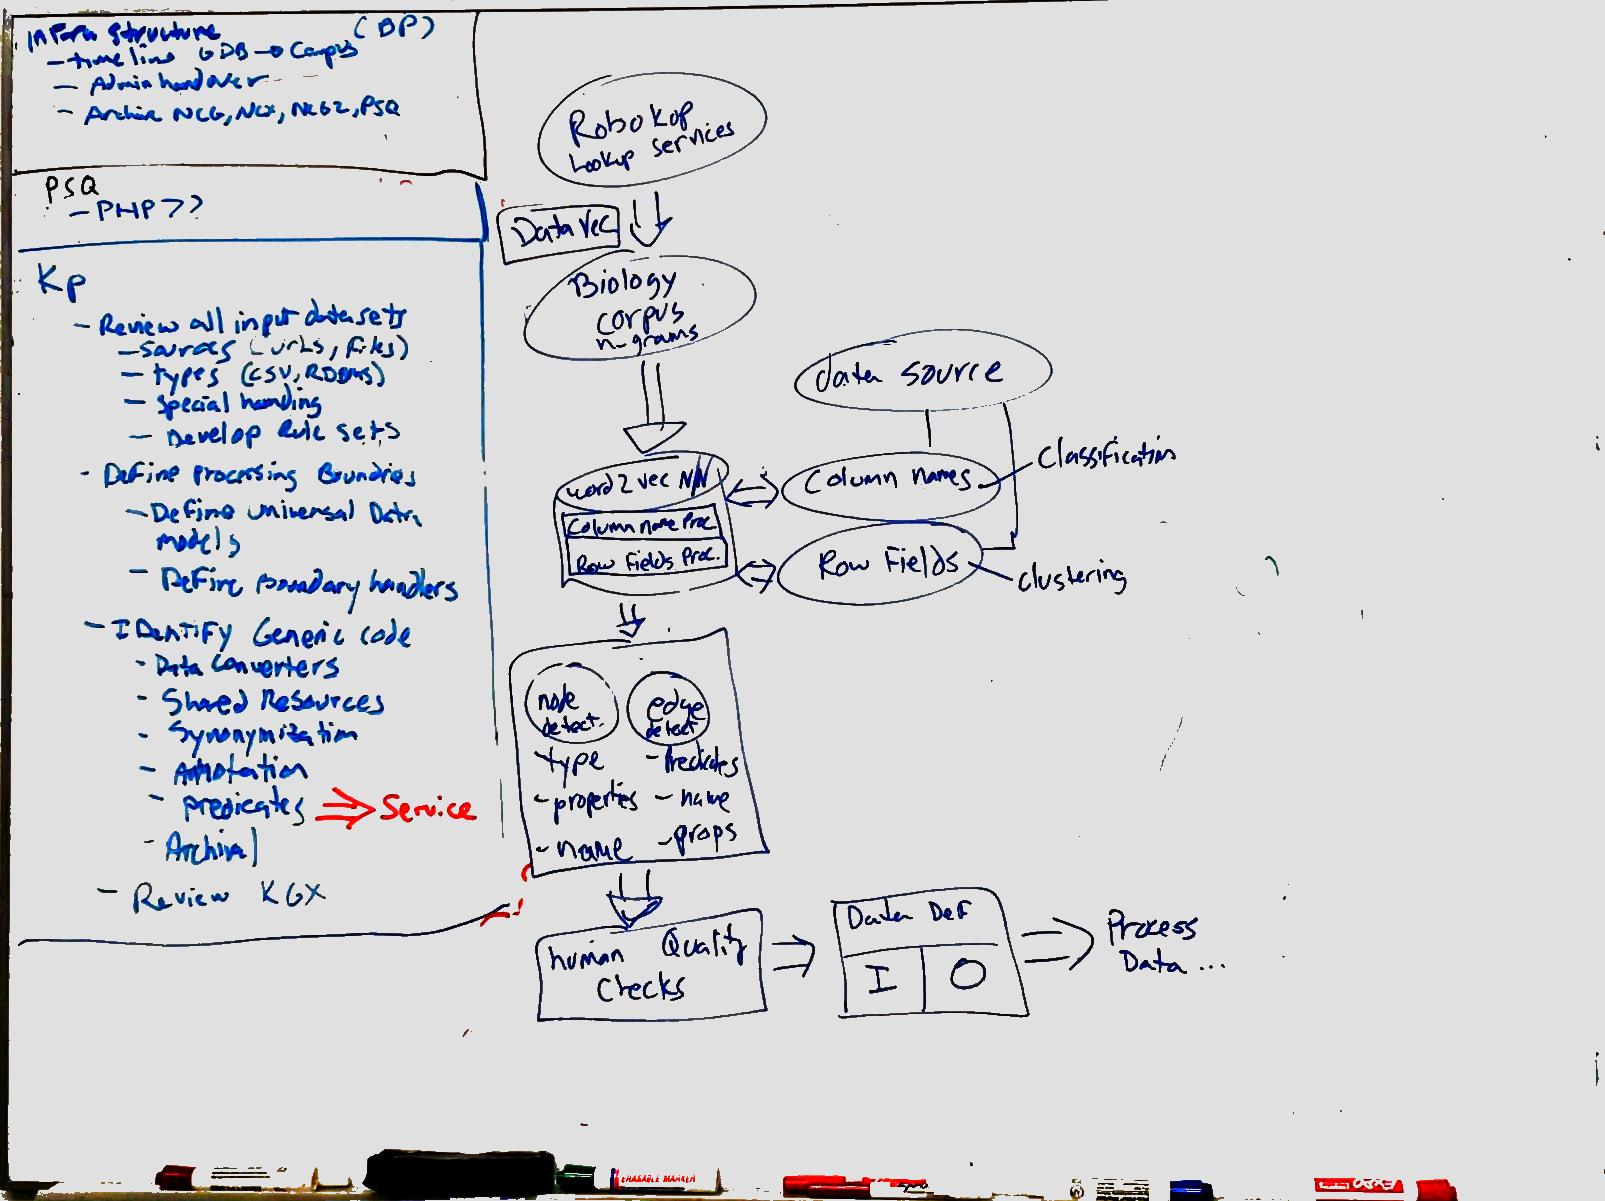 Infrastructure (BP)
- timeline GDB → Campus
- Admin handover
- Archive NCG, NCX, NCG2, PSQ
PSQ
- PHP 7??
Kp
- Review all input datasets
- sources (urls, files)
- types (CSV, RDBMS)
- special handling
- Develop Rule sets
- Define Processing Boundries
- Define universal Data
models
- Define Boundary handlers
- IDentify Generic code
- Data Converters
- Shared Resources
- Synonymization
- Annotation
- predicates ⇒ Service
- Archival
- Review KGX
Robokop
Lookup services
Data Vec
Biology
corpus
n-grams
data source
word2vec N/N
Column names
Classification
Column name Proc.
Row Fields Proc.
Row Fields
clustering
node
detect.
edge
detect
- type
- Predicates
- properties
- name
- name
- props
human Quality
Checks
Data Def
I O
Process
Data ...
ERASABLE MARKER
EXPO